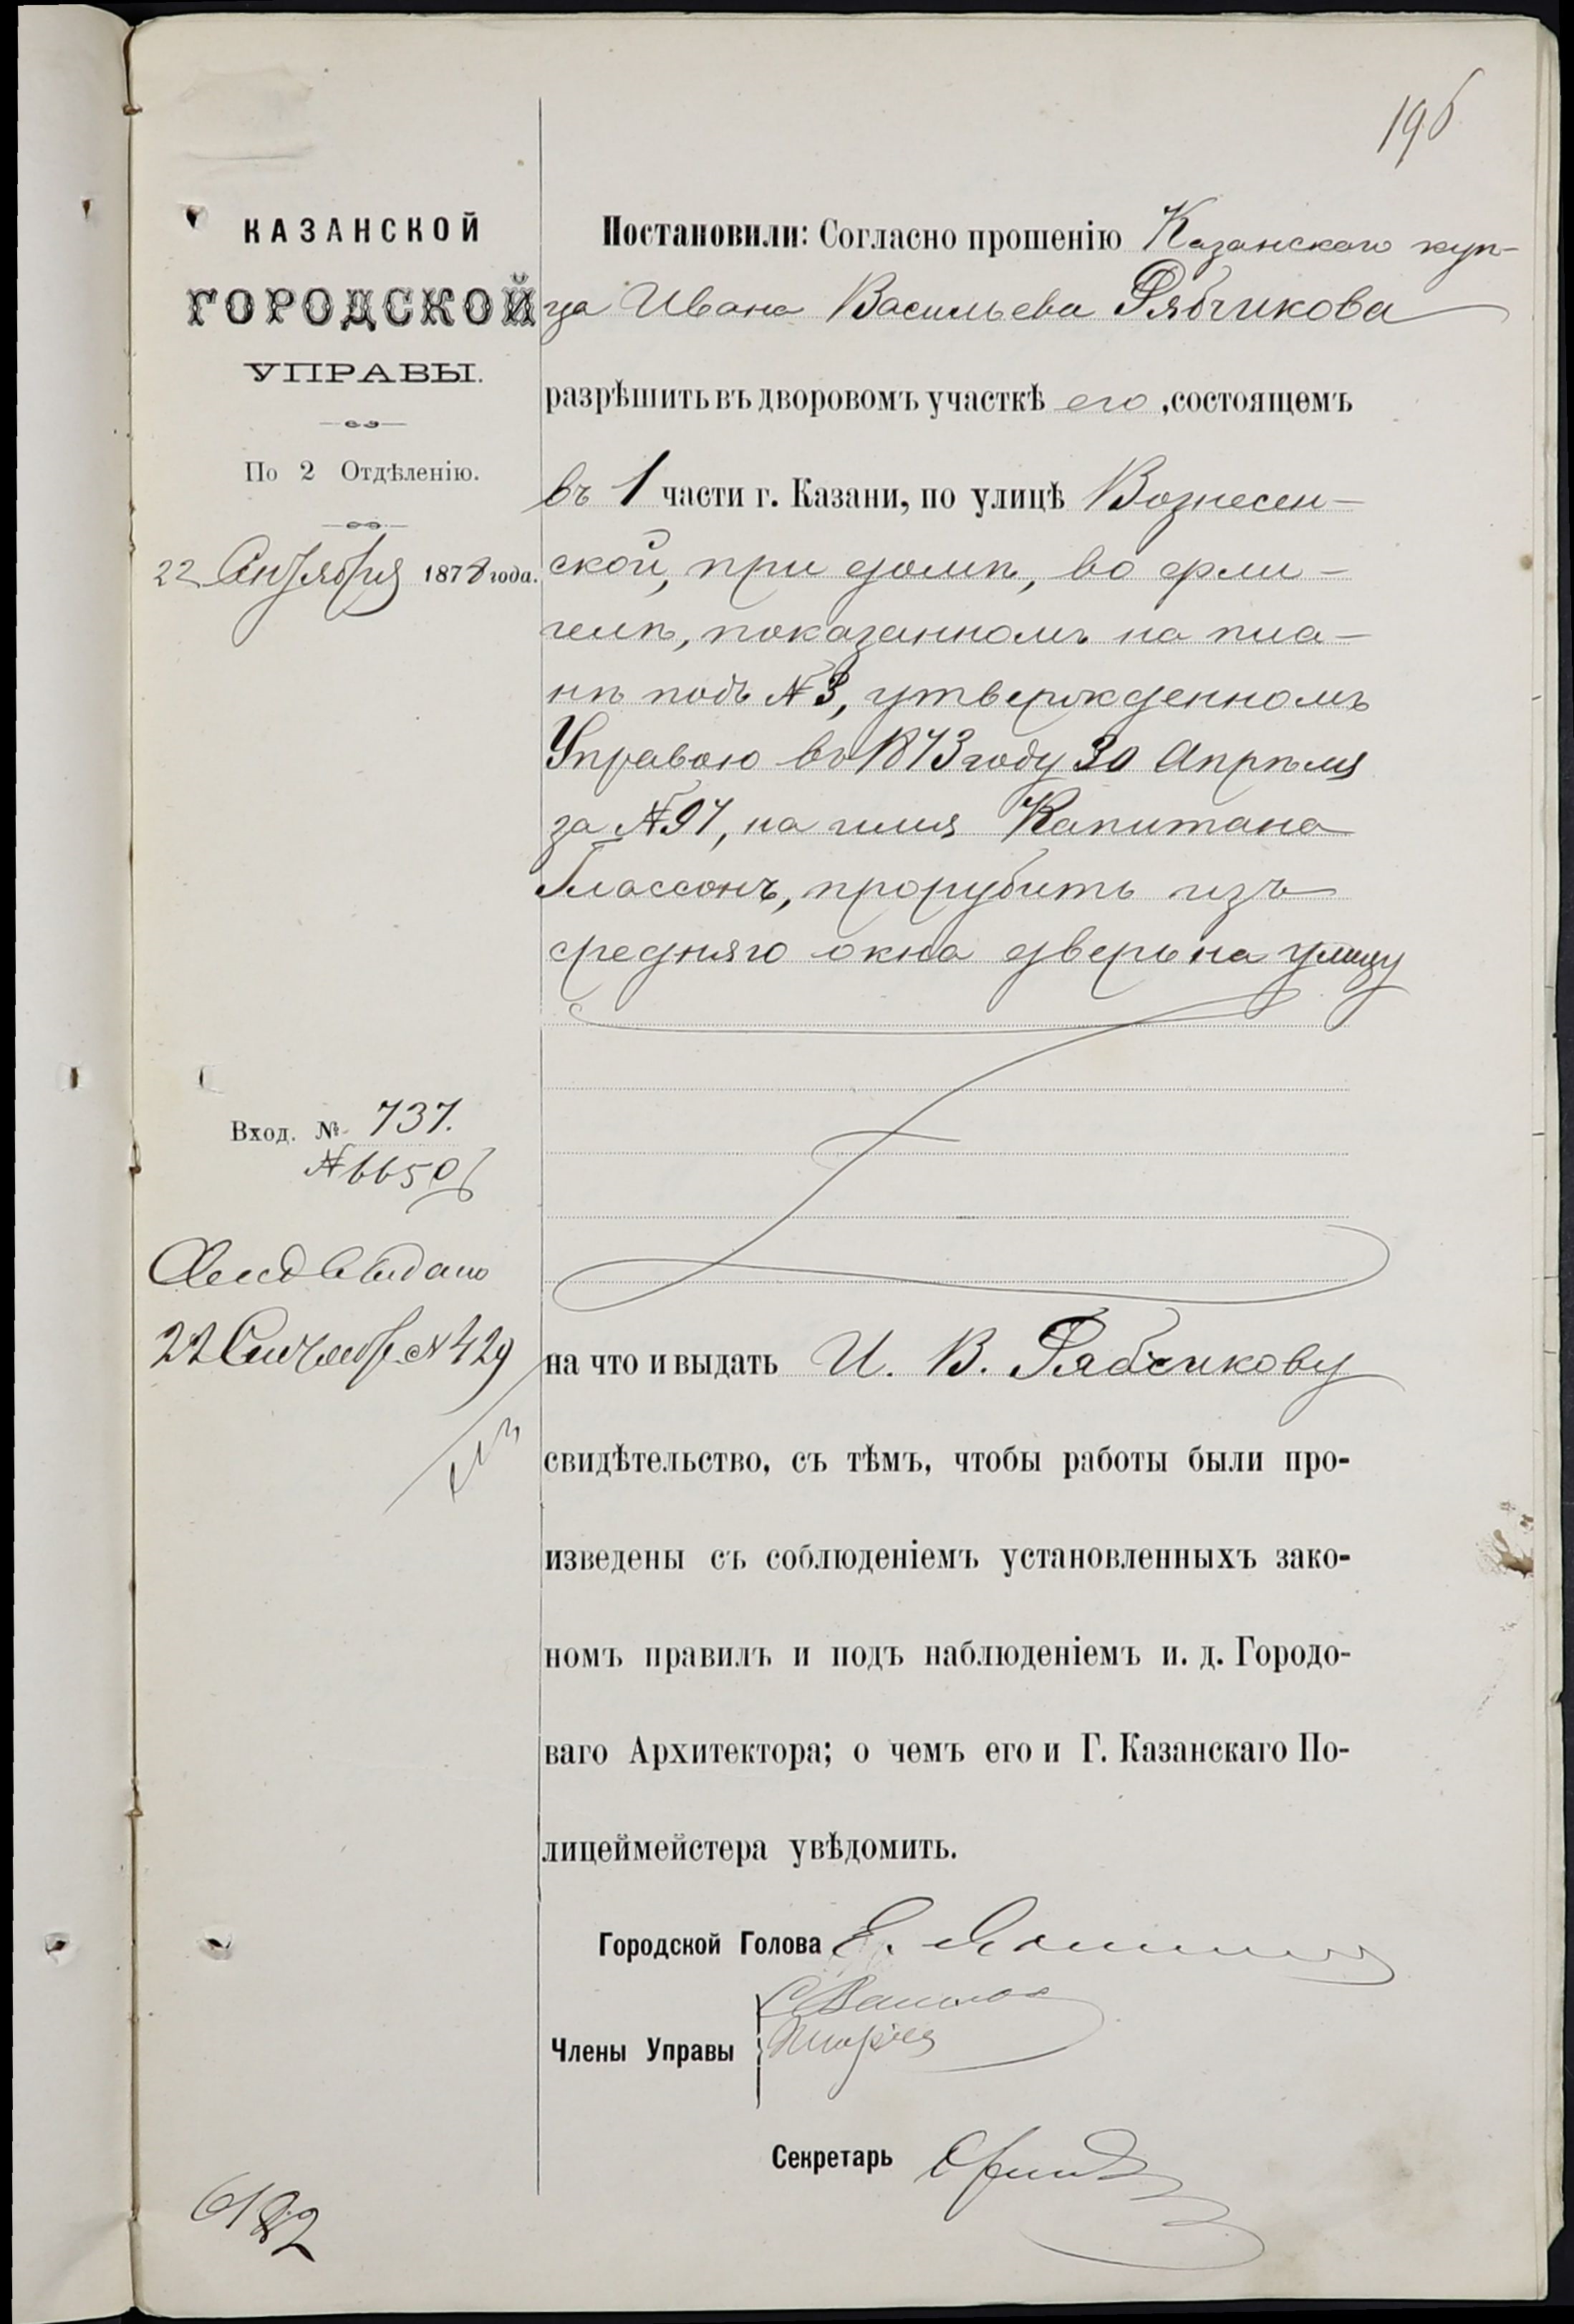 196
КАЗАНСКОЙ
ГОРОДСКОЙ
УПРАВЫ.
По 2 Отдѣленію.
22 Сентября 1878 года.
Вход. № 737.
№ 6650
22 Сентября № 429
Постановили: Согласно прошенію Казанскаго куп-
ца Ивана Васильева Рябчикова
разрѣшить въ дворовомъ участкѣ его, состоящемъ
въ 1 части г. Казани, по улицѣ Вознесен-
ской, при домѣ, во фли-
гелѣ, показанномъ на пла-
нѣ подъ № 3, утвержденномъ
Управою въ 1873 году 30 Апрѣля
за № 97, на имя Капитана
Глассонъ, прорубить изъ
средняго окна дверь на улицу
на что и выдать И. В. Рябчикову
свидѣтельство, съ тѣмъ, чтобы работы были про-
изведены съ соблюденіемъ установленныхъ зако-
номъ правилъ и подъ наблюденіемъ и. д. Городо-
ваго Архитектора; о чемъ его и Г. Казанскаго По-
лицеймейстера увѣдомить.
Городской Голова Е.
Члены Управы
Секретарь